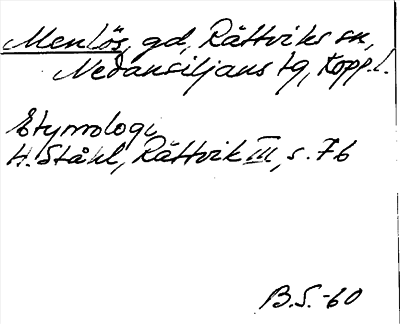 Menlös, gd, Rättviks sn,
Nedansiljans tg, Kopp.l.
Etymologi
H. Ståhl, Rättvik III, s. 76
B.S.-60